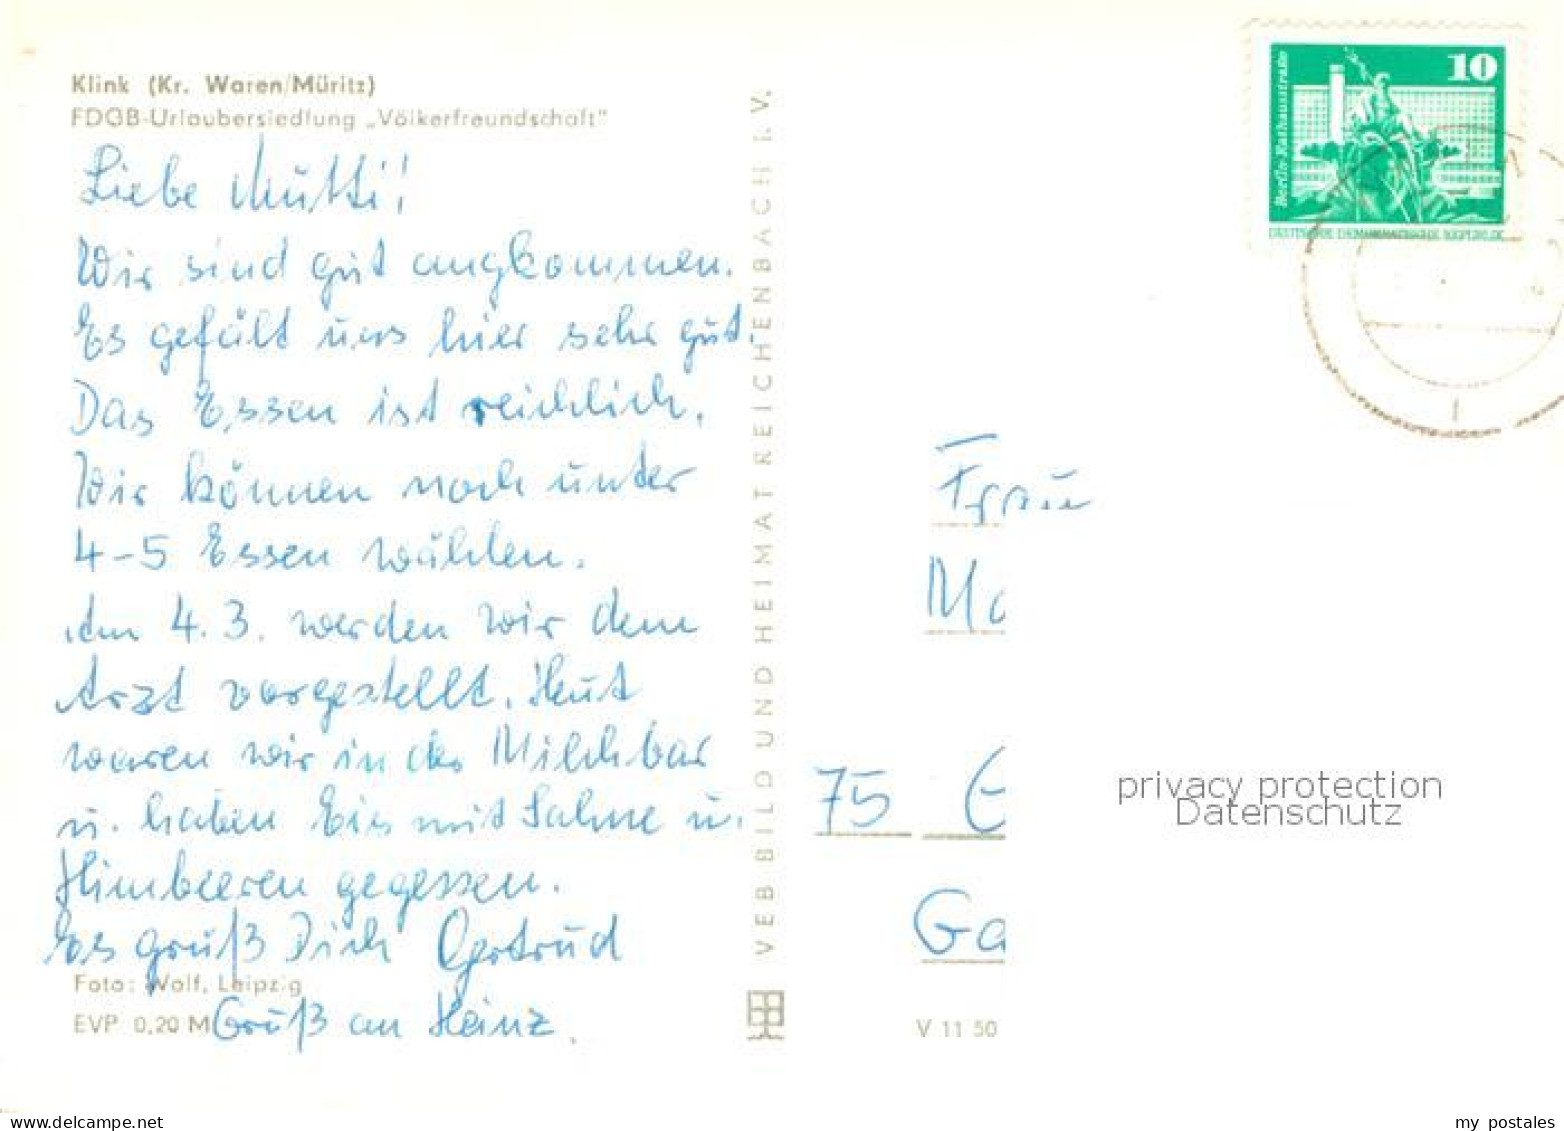 Klink (Kr. Waren/Müritz)
FDGB-Urlaubersiedlung „Völkerfreundschaft"
Liebe Mutti!
Wir sind gut angkommen.
Es gefält uns hier sehr gut.
Das Essen ist reichlich.
Wir können noch unter
4-5 Essen wählen.
Am 4.3. werden wir dem
Arzt vorgestellt. Heut
waren wir in der Milchbar
u. haben Eis mit Sahne u.
Himbeeren gegessen.
Es grüß Dich Gertrud
Foto: Wolf, Leipzig
EVP 0,20 M
Gruß an Heinz.
VEB BILD UND HEIMAT REICHENBACH I. V.
10
Berlin-Rathausstraße
DEUTSCHE DEMOKRATISCHE REPUBLIK
Frau
75
V 11 50
privacy protection
Datenschutz
www.delcampe.net
my_postales